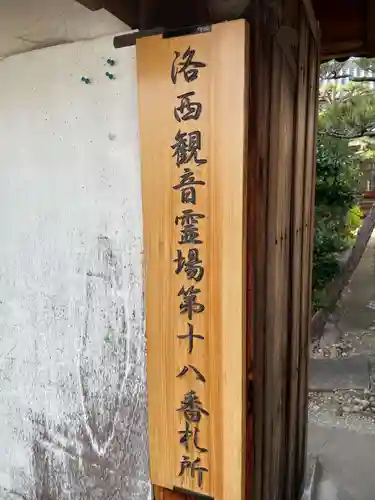 洛西観音霊場第十八番札所